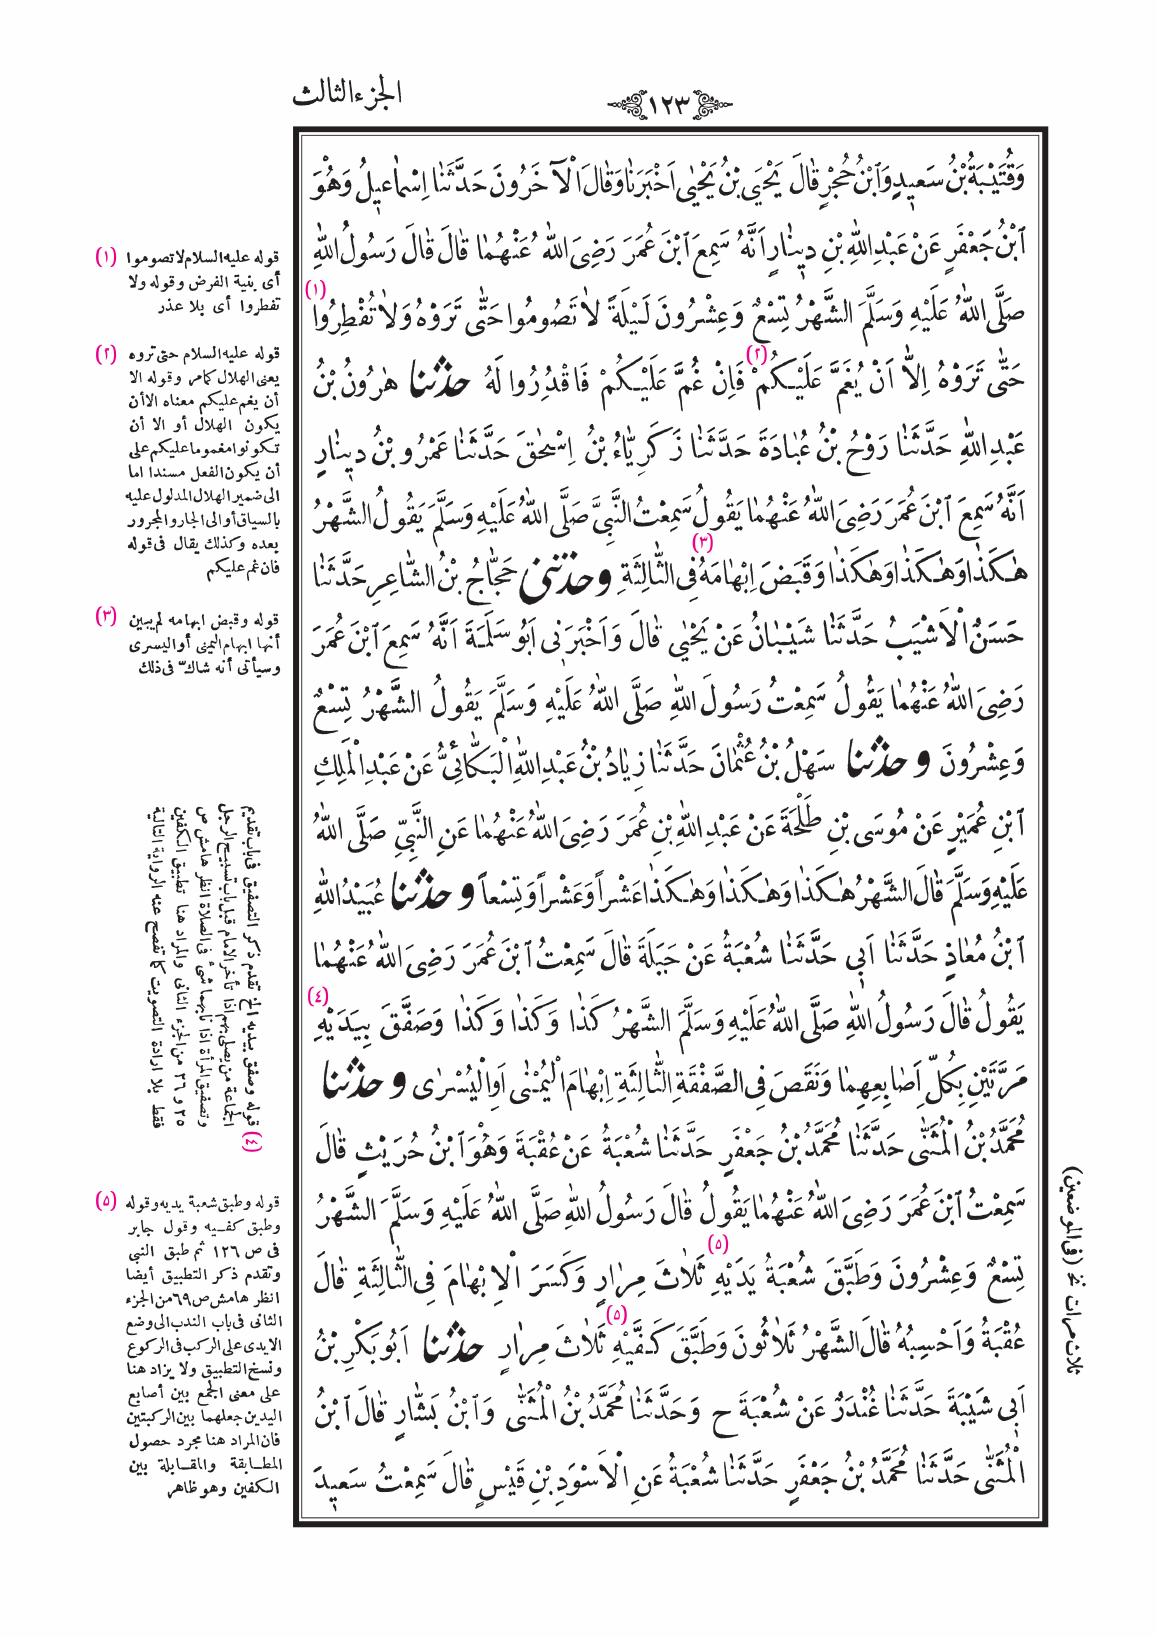 الجزء الثالث
١٢٣
وَقُتَيْبَةُ بْنُ سَعِيدٍ وَابْنُ حُجْرٍ قَالَ يَحْيَى بْنُ يَحْيٰى اَخْبَرَنَا وَقَالَ الْآخَرُونَ حَدَّثَنَا اِسْمَاعِيلُ وَهُوَ
ابْنُ جَعْفَرٍ عَنْ عَبْدِاللّٰهِ بْنِ دِينَارٍ اَنَّهُ سَمِعَ ابْنَ عُمَرَ رَضِىَ اللّٰهُ عَنْهُمَا قَالَ قَالَ رَسُولُ اللّٰهِ
صَلَّى اللّٰهُ عَلَيْهِ وَسَلَّمَ الشَّهْرُ تِسْعٌ وَعِشْرُونَ لَيْلَةً لاٰ تَصُومُوا حَتّٰى تَرَوْهُ وَلاٰ تُفْطِرُوا (١)
حَتّٰى تَرَوْهُ اِلاّٰ اَنْ يُغَمَّ عَلَيْكُمْ (٢) فَاِنْ غُمَّ عَلَيْكُمْ فَاقْدِرُوا لَهُ حدثنا هٰرُونُ بْنُ
عَبْدِاللّٰهِ حَدَّثَنَا رَوْحُ بْنُ عُبَادَةَ حَدَّثَنَا زَكَرِيَّاءُ بْنُ اِسْحٰقَ حَدَّثَنَا عَمْرُو بْنُ دِينَارٍ
اَنَّهُ سَمِعَ ابْنَ عُمَرَ رَضِىَ اللّٰهُ عَنْهُمَا يَقُولُ سَمِعْتُ النَّبِيَّ صَلَّى اللّٰهُ عَلَيْهِ وَسَلَّمَ يَقُولُ الشَّهْرُ
هٰكَذَا وَهٰكَذَا وَهٰكَذَا وَقَبَضَ اِبْهَامَهُ (٣) فِى الثَّالِثَةِ وحدثنى حَجَّاجُ بْنُ الشَّاعِرِ حَدَّثَنَا
حَسَنٌ الْاَشْيَبُ حَدَّثَنَا شَيْبَانُ عَنْ يَحْيٰى قَالَ وَاَخْبَرَنِى اَبُو سَلَمَةَ اَنَّهُ سَمِعَ ابْنَ عُمَرَ
رَضِىَ اللّٰهُ عَنْهُمَا يَقُولُ سَمِعْتُ رَسُولَ اللّٰهِ صَلَّى اللّٰهُ عَلَيْهِ وَسَلَّمَ يَقُولُ الشَّهْرُ تِسْعٌ
وَعِشْرُونَ وحدثنا سَهْلُ بْنُ عُثْمَانَ حَدَّثَنَا زِيَادُ بْنُ عَبْدِاللّٰهِ الْبَكَّائِىُّ عَنْ عَبْدِ الْمَلِكِ
ابْنِ عُمَيْرٍ عَنْ مُوسَى بْنِ طَلْحَةَ عَنْ عَبْدِاللّٰهِ بْنِ عُمَرَ رَضِىَ اللّٰهُ عَنْهُمَا عَنِ النَّبِيِّ صَلَّى اللّٰهُ
عَلَيْهِ وَسَلَّمَ قَالَ الشَّهْرُ هٰكَذَا وَهٰكَذَا وَهٰكَذَا عَشْراً وَعَشْراً وَتِسْعاً وحدثنا عُبَيْدُاللّٰهِ
ابْنُ مُعَاذٍ حَدَّثَنَا اَبِى حَدَّثَنَا شُعْبَةُ عَنْ جَبَلَةَ قَالَ سَمِعْتُ ابْنَ عُمَرَ رَضِىَ اللّٰهُ عَنْهُمَا
يَقُولُ قَالَ رَسُولُ اللّٰهِ صَلَّى اللّٰهُ عَلَيْهِ وَسَلَّمَ الشَّهْرُ كَذَا وَكَذَا وَكَذَا وَصَفَّقَ بِيَدَيْهِ (٤)
مَرَّتَيْنِ بِكُلِّ اَصَابِعِهِمَا وَنَقَصَ فِى الصَّفْقَةِ الثَّالِثَةِ اِبْهَامَ الْيُمْنٰى اَوِ الْيُسْرٰى وحدثنا
مُحَمَّدُ بْنُ الْمُثَنّٰى حَدَّثَنَا مُحَمَّدُ بْنُ جَعْفَرٍ حَدَّثَنَا شُعْبَةُ عَنْ عُقْبَةَ وَهُوَ ابْنُ حُرَيْثٍ قَالَ
سَمِعْتُ ابْنَ عُمَرَ رَضِىَ اللّٰهُ عَنْهُمَا يَقُولُ قَالَ رَسُولُ اللّٰهِ صَلَّى اللّٰهُ عَلَيْهِ وَسَلَّمَ الشَّهْرُ
تِسْعٌ وَعِشْرُونَ وَطَبَّقَ شُعْبَةُ يَدَيْهِ (٥) ثَلاٰثَ مِرَارٍ وَكَسَرَ الْاِبْهَامَ فِى الثَّالِثَةِ قَالَ
عُقْبَةُ وَاَحْسِبُهُ قَالَ الشَّهْرُ ثَلاٰثُونَ وَطَبَّقَ كَفَّيْهِ (٥) ثَلاٰثَ مِرَارٍ حدثنا اَبُو بَكْرِ بْنُ
اَبِى شَيْبَةَ حَدَّثَنَا غُنْدَرٌ عَنْ شُعْبَةَ ح وَحَدَّثَنَا مُحَمَّدُ بْنُ الْمُثَنّٰى وَابْنُ بَشَّارٍ قَالَ ابْنُ
الْمُثَنّٰى حَدَّثَنَا مُحَمَّدُ بْنُ جَعْفَرٍ حَدَّثَنَا شُعْبَةُ عَنِ الْاَسْوَدِ بْنِ قَيْسٍ قَالَ سَمِعْتُ سَعِيدَ
(١) قوله عليه السلام لا تصوموا
أى بنية الفرض وقوله ولا
تفطروا أى بلا عذر
(٢) قوله عليه السلام حتى تروه
يعنى الهلال كمامر وقوله الا
أن يغم عليكم معناه الا أن
يكون الهلال أو الا أن
تكونوا مغموما عليكم على
أن يكون الفعل مسندا اما
الى ضمير الهلال المدلول عليه
بالسياق أو الى الجار والمجرور
بعده وكذلك يقال فى قوله
فان غم عليكم
(٣) قوله وقبض ابهامه لم يبين
أنها ابهام اليمنى أو اليسرى
وسيأتى أنه شاكّ فى ذلك
(٤) قوله وصفق بيديه الخ تقدم ذكر التصفيق فى باب تقديم
الجماعة من يصلى بهم اذا تأخر الامام قبل باب تسبيح الرجل
وتصفيق المرأة اذا نابهما شئ فى الصلاة انظر هامش ص
٢٥ و ٢٦ من الجزء الثانى والمراد هنا تطبيق الكفين
فقط بلا ارادة التصويت كما تفصح عنه الرواية التالية
(٥) قوله وطبق شعبة يديه وقوله
وطبق كفيه وقول جابر
فى ص ١٢٦ ثم طبق النبي
وتقدم ذكر التطبيق أيضا
انظر هامش ص ٦٩ من الجزء
الثانى فى باب الندب الى وضع
الايدى على الركب فى الركوع
ونسخ التطبيق ولا يراد هنا
على معنى الجمع بين أصابع
اليدين جعلهما بين الركبتين
فان المراد هنا مجرد حصول
المطابقة والمقابلة بين
الكفين وهو ظاهر
ثلاث مرات نخ (فى الموضعين)